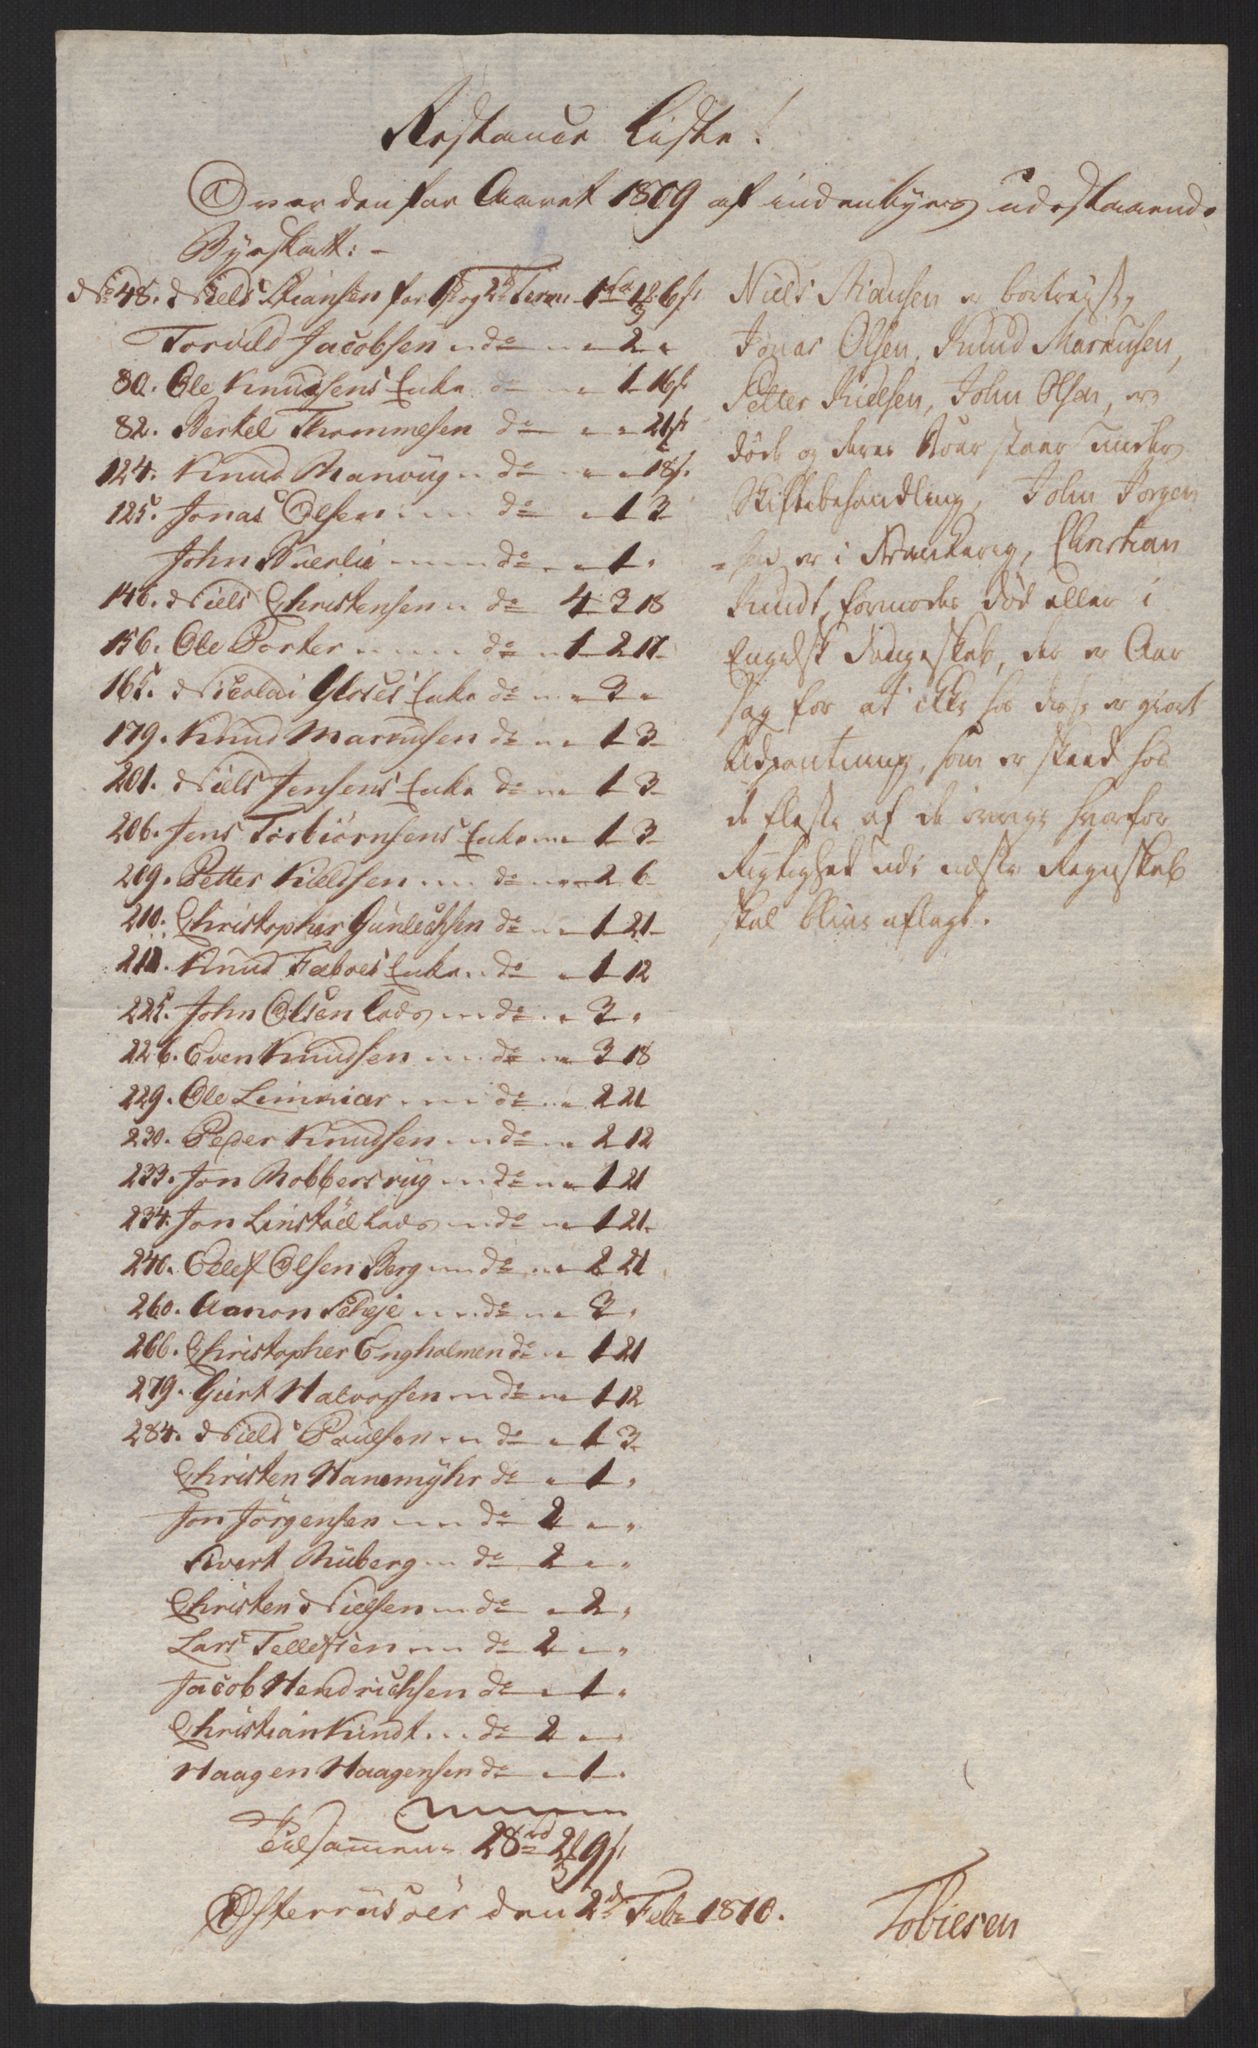 Restance Liste!
Over den for Aaret 1809 af indenbyes udestaaende
Byeskatt: -
No 48. Niels Stiansen for 1ste og 2den Termin 1 rd 1 6 s
Torvild Jacobsen do 2 "
80. Ole Knudsens Enke do 1 16 s
82. Berkel Thommesen do " 21 s
124. Knud do " 18 s
125. Jonas Olsen do 1 3
John do 1 "
146. Niels Christensen do 4 3 18
156. Ole Porter do 1 2 17
165. Nicolai Enke do 3 "
179. Knud Markusen do 1 3
201. Niels Jensens Enke do 1 3
206. Jens Torbiörnsens Enke 1 3
209. Petter Kielsen do 2 6
210. Christopher Gunlechsen do 1 21
211. Knud Faboes Enke do 1 12
225. John Olsen Lods do 3 "
226. Even Knudsen do 3 18
229. Ole Liminiar do 2 21
230. Peder Knudsen do 2 12
233. Jon Robbersvüg do 1 21
234. Jon Linstöel Lods do 1 21
240. Ellef Olsen Berg do 2 21
260. Aanon Scheje do 3 "
266. Christopher Engholmen do 1 21
279. Giert Halvorsen do 1 12
284. Niels Poulsen do 1 3
Christen Hanemyhr do 1 "
Jon Jörgensen do 2 " "
Sivert Ruberg do 2 " "
Christen Nielsen do 2 "
Lars Tellefsen do 2 " "
Jacob Hendrichsen do 1 "
Christian Kundt do 2 "
Haagen Haagensen do 1 "
Tilsammen 28 rd 2 9 s
Österriisöer den 2d Febr 1810.
Niels Stiansen er bortreist,
Jonas Olsen, Knud Markusen,
Petter Kielsen, John Olsen, er
döde og deres Boer staar under
Skiftebehandling, John Jörgen
-sen er i Frankerig, Christian
Kundt, formodes död eller i
Engelsk Fangeskab, der er Aar
sag for at ikke hos disse er giort
Udpantning, som er skeed hos
de fleste af de övrige hvorfor
Rigtighed udi næste Regnskab
skal blive aflagt.
Tobiesen